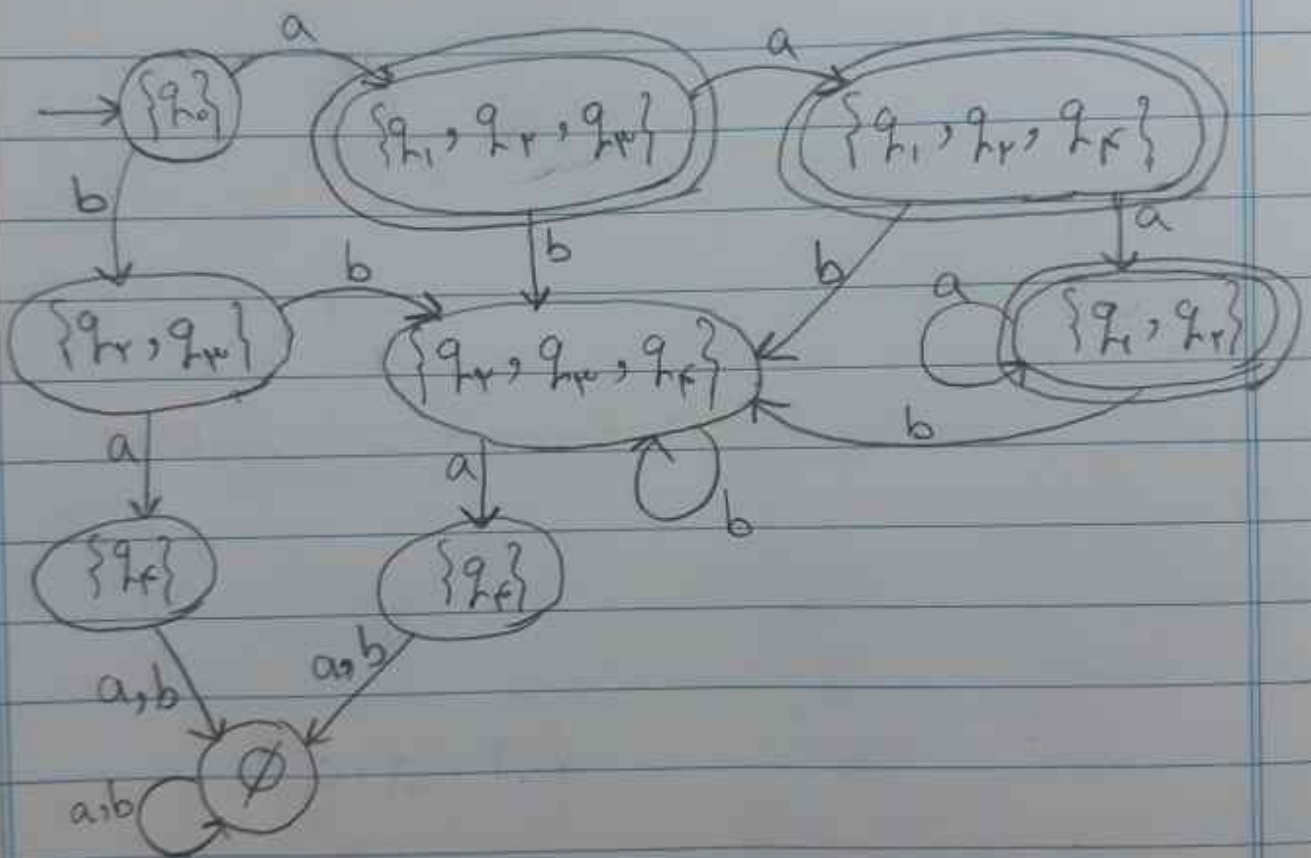 a a
{q₀} {q₁, q₂, q₃} {q₁, q₂, q₄}
b b b a
b a
{q₂, q₃} {q₂, q₃, q₄} {q₁, q₂}
b
a a b
{q₄} {q₄}
a,b a,b
∅
a,b